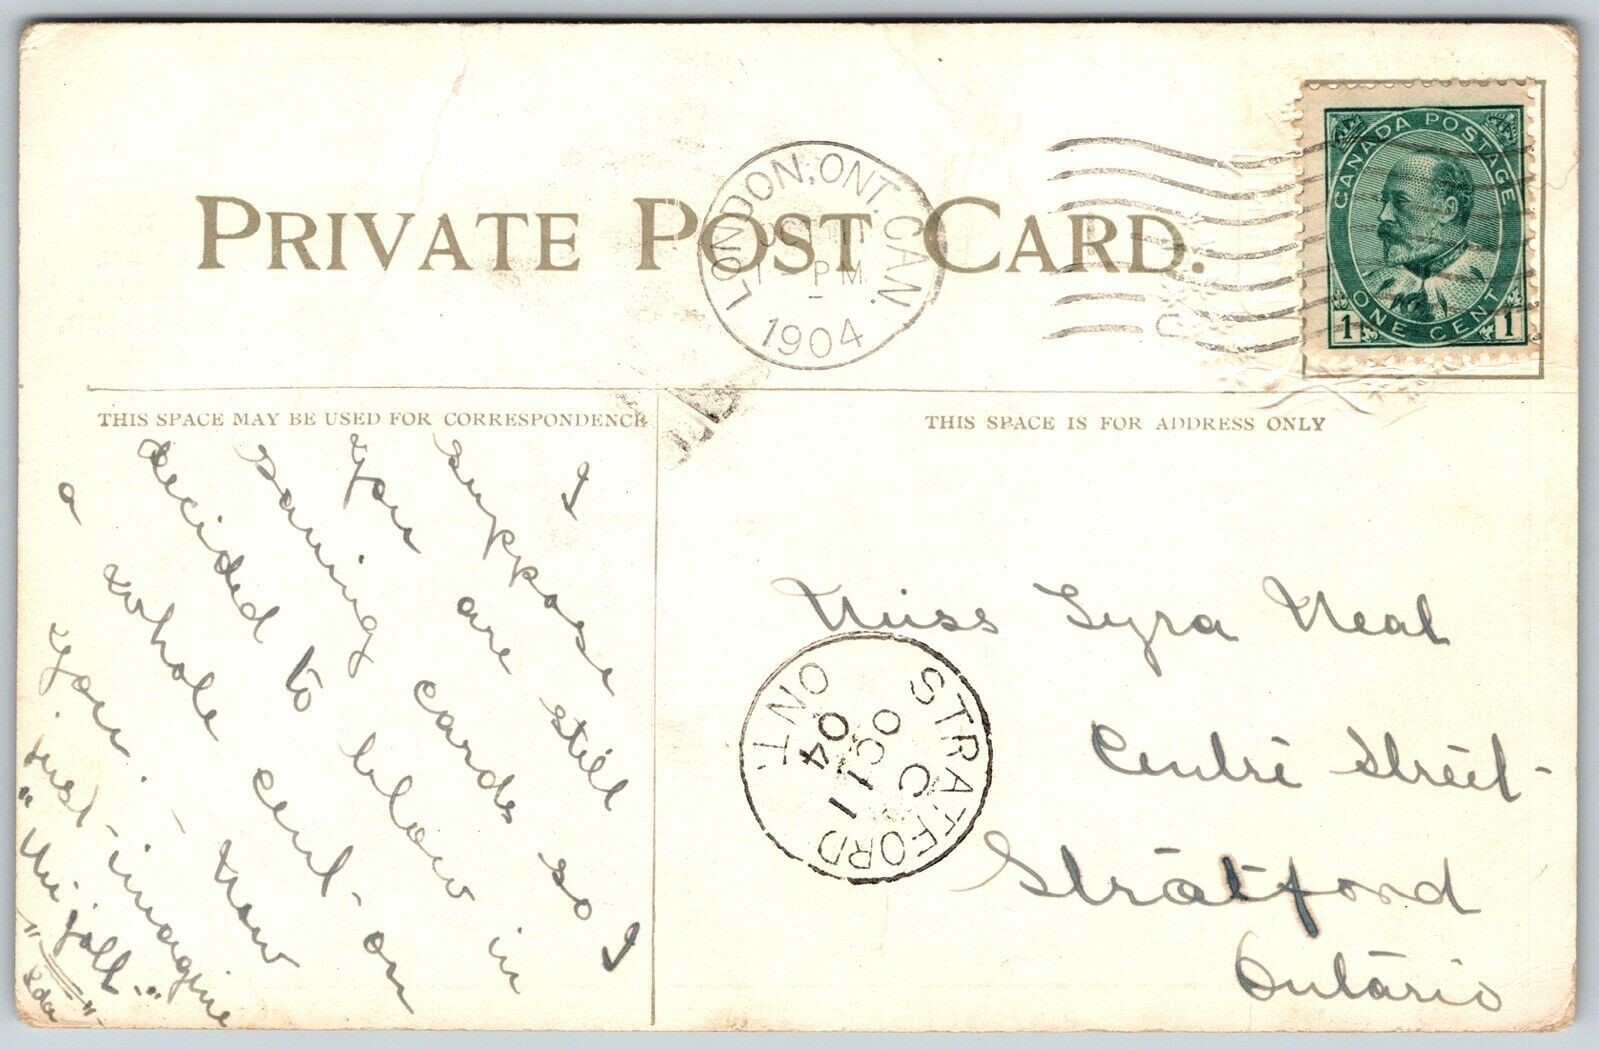 PRIVATE POST CARD.
LONDON, ONT. CAN.
PM
1904
CANADA POSTAGE
ONE CENT
1 1
THIS SPACE MAY BE USED FOR CORRESPONDENCE
THIS SPACE IS FOR ADDRESS ONLY
I
suppose
you are still
saving cards so I
decided to blow in
a whole cent on
you. - now
just imagine
Ida
Miss Lyra Neal
Centre Street
Stratford
Ontario
STRATFORD ONT.
C
OC 11
04